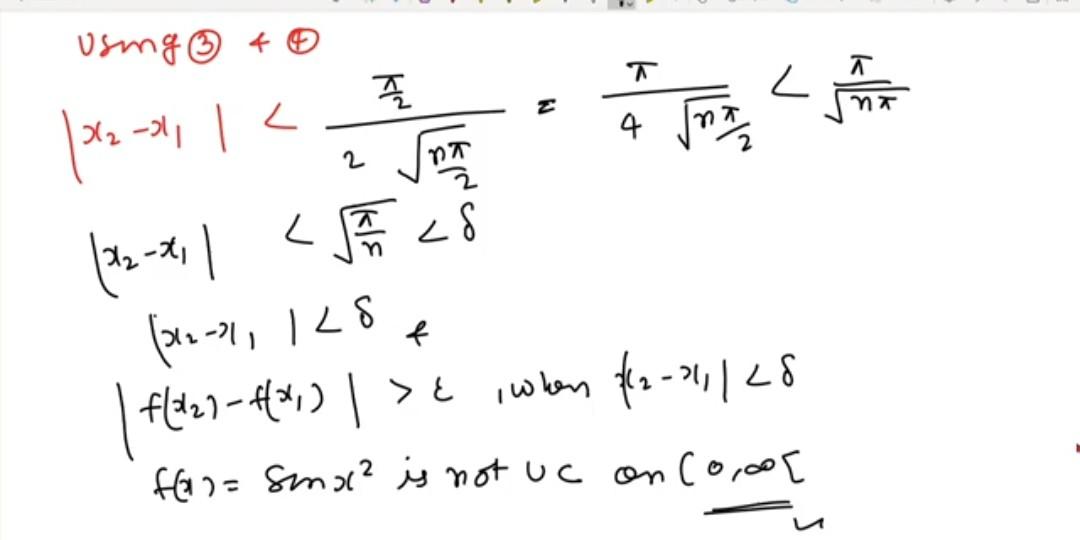 Using ③ & ④
|x₂-x₁| < (π/2)/(2√(nπ/2)) = π/(4√(nπ/2)) < π/√(nπ)
|x₂-x₁| < √(π/n) < δ
|x₂-x₁| < δ &
|f(x₂)-f(x₁)| > ε, when |x₂-x₁| < δ
f(x) = Sin x² is not UC on [0,∞[